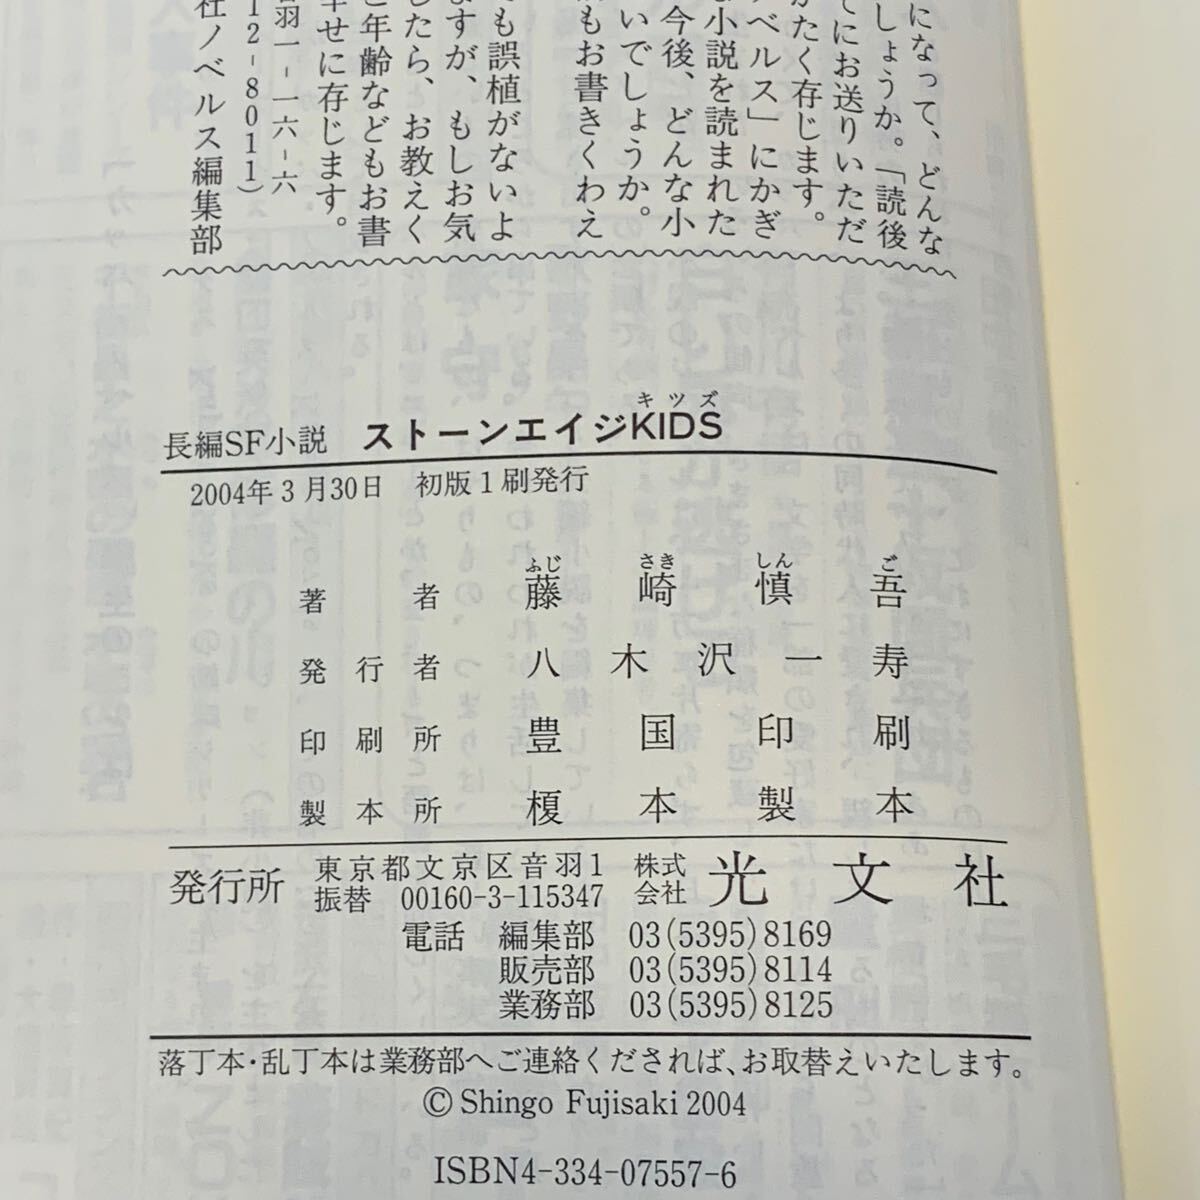 になって、どんな
しょうか。「読後
てにお送りいただ
がたく存じます。
ベルス」にかぎ
小説を読まれた
今後、どんな小
いでしょうか。
もお書きくわえ
も誤植がないよ
ますが、もしお気
したら、お教えく
と年齢などもお書
幸せに存じます。
羽一-一六-六
12-8011)
社ノベルス編集部
長編SF小説 ストーンエイジKIDS
キッズ
2004年3月30日 初版1刷発行
ふじ さき しん ご
著者 藤崎慎吾
発行者 八木沢一寿
印刷所 豊国印刷
製本所 榎本製本
発行所 東京都文京区音羽1 株式会社 光文社
振替 00160-3-115347
電話 編集部 03(5395)8169
販売部 03(5395)8114
業務部 03(5395)8125
落丁本・乱丁本は業務部へご連絡くだされば、お取替えいたします。
© Shingo Fujisaki 2004
ISBN4-334-07557-6